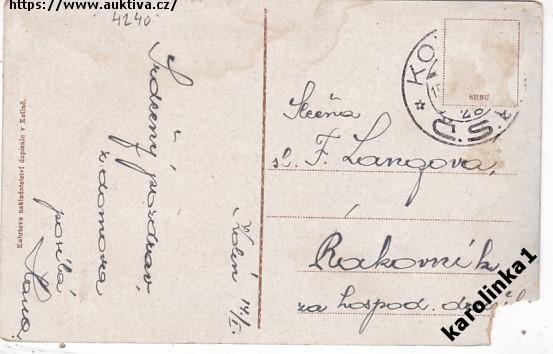 https://www.auktiva.cz/
4240
Srdečný pozdrav
z domova
posílá
Hana.
Kolín 14/I.
Kubrtova nakladatelství dopisnic v Kolíně.
SHBU
* KO
Slečna
sl. F. Langova,
Rakovník
za hospod.
karolinka1